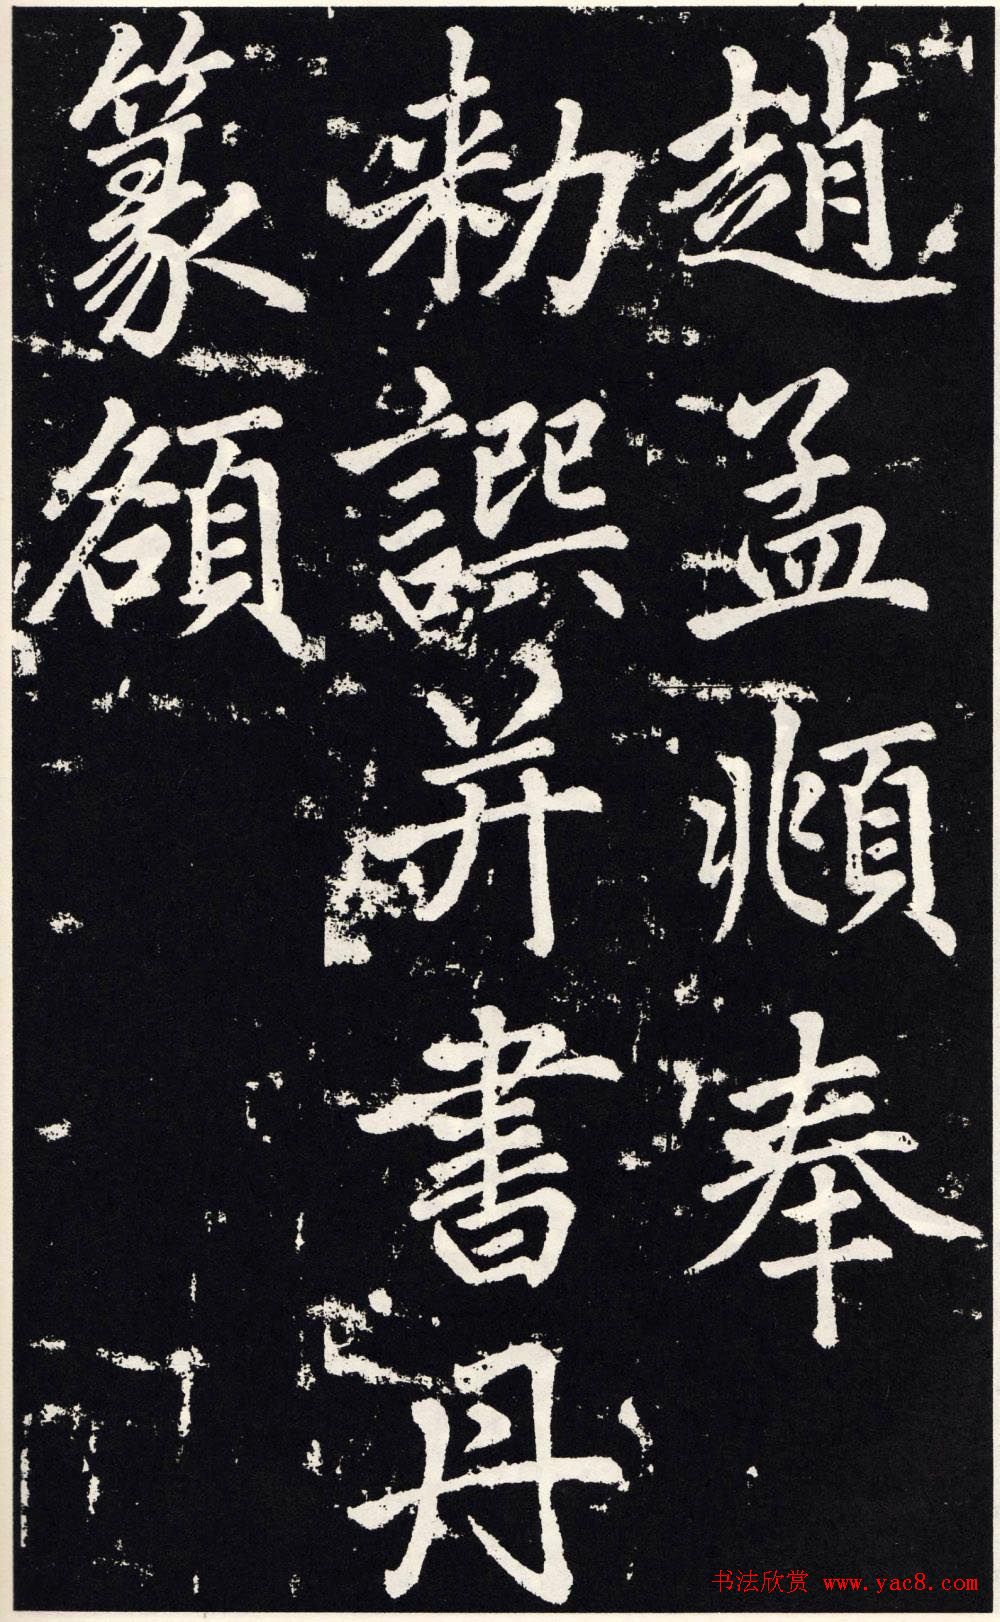 趙孟頫奉
勅譔并書丹
篆額
书法欣赏 www.yac8.com